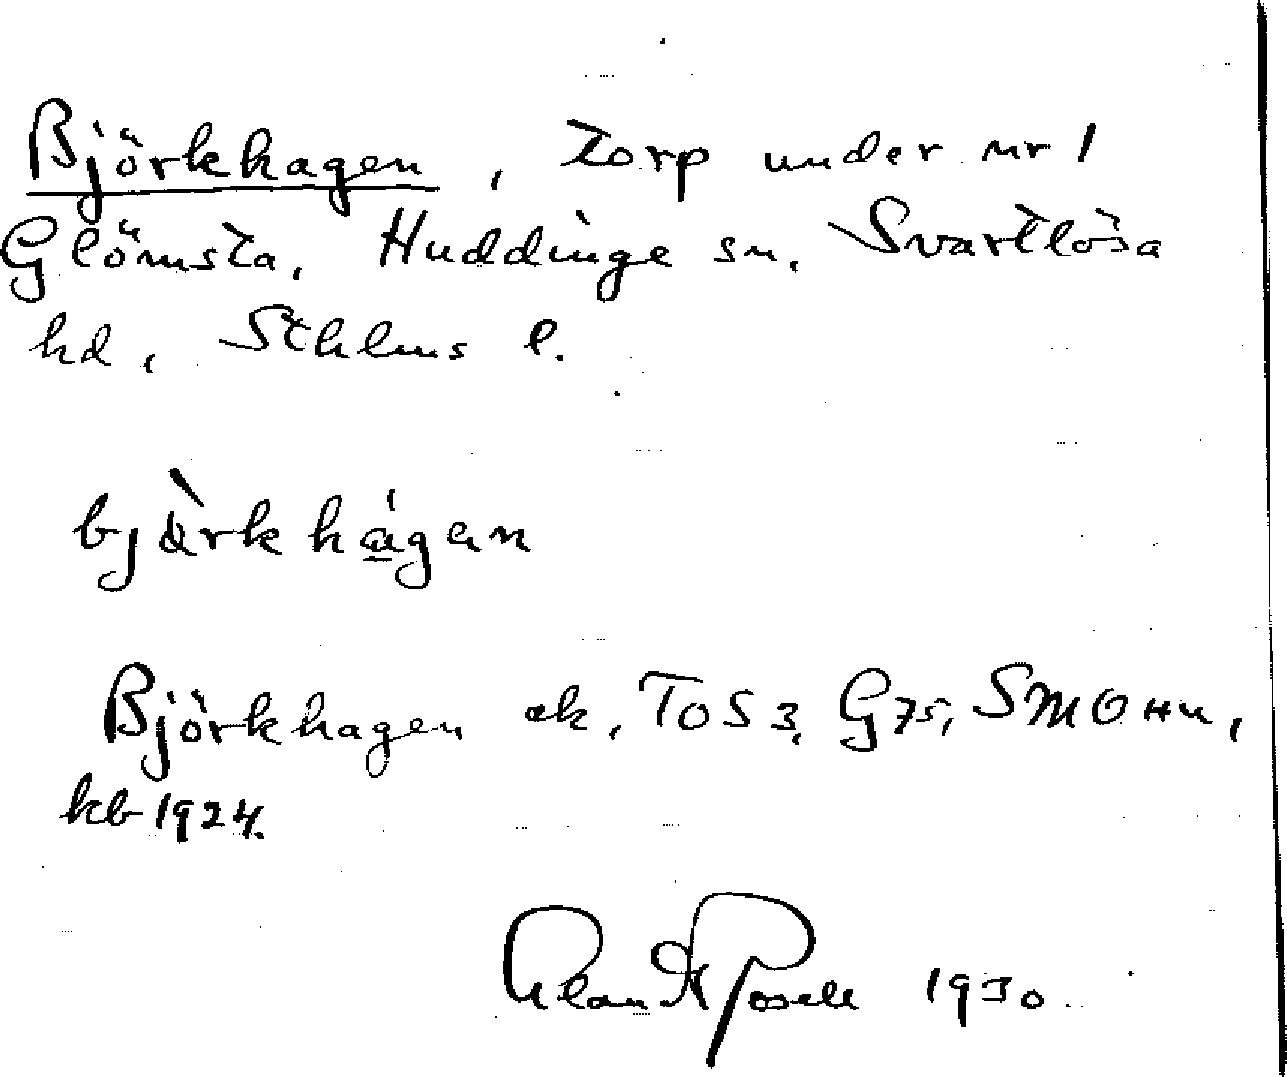 Björkhagen, torp under nr 1
Glömsta, Huddinge sn, Svartlösa
hd, Sthlms l.
bjàrkhágan
Björkhagen ek, ToS 3, G 75, SMOHu,
kb 1924.
1930